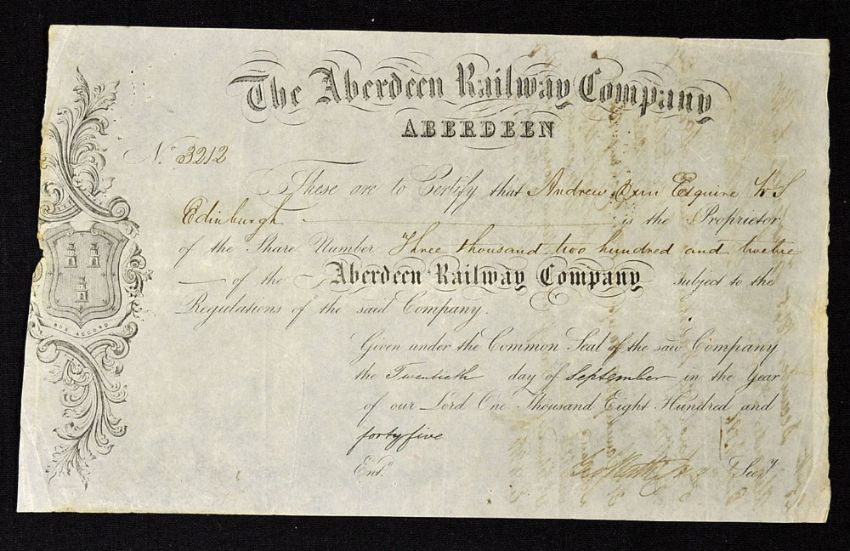 The Aberdeen Railway Company
ABERDEEN
No. 3212
These are to Certify that Andrew Esquire W S
Edinburgh is the Proprietor
of the Share Number Three thousand two hundred and twelve
of the Aberdeen Railway Company Subject to the
Regulations of the said Company.
Given under the Common Seal of the said Company
the Twentieth day of September in the Year
of our Lord One Thousand Eight Hundred and
forty five
Entd. Secy.
BON ACCORD